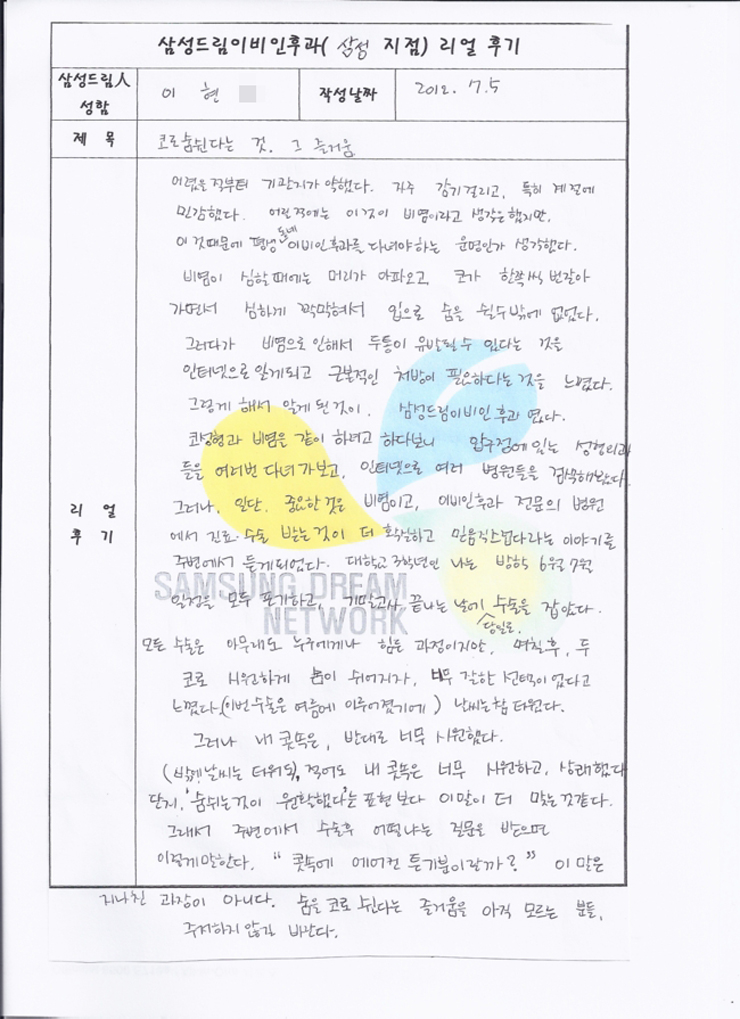 삼성드림이비인후과( 삼성 지점) 리얼 후기
삼성드림人 성함
이 현
작성날짜
2012. 7.5
제 목
코로숨쉰다는 것. 그 즐거움
리 얼
후 기
어렸을적부터 기관지가 약했다. 자주 감기걸리고, 특히 계절에
민감했다. 어린적에는 이것이 비염이라고 생각은했지만,
이것때문에 평생 동네 이비인후과를 다녀야하는 운명인가 생각했다.
비염이 심할때에는 머리가 아파오고 코가 한쪽씩 번갈아
가면서 심하게 꽉막혀서 입으로 숨을 쉴수밖에 없었다.
그러다가 비염으로인해서 두통이 유발될수 있다는 것을
인터넷으로 알게되고 근본적인 처방이 필요하다는것을 느꼈다.
그렇게 해서 알게된것이. 삼성드림이비인후과 였다.
코성형과 비염을 같이 하려고 하다보니 압구정에있는 성형외과
들을 여러번 다녀가보고, 인터넷으로 여러 병원들을 검색해봤다.
그러나, 일단. 중요한것은 비염이고, 이비인후과 전문의 병원
에서 진료·수술 받는것이 더 확실하고 믿음직스럽다라는 이야기를
주변에서 듣게되었다. 대학교 3학년인 나는 방학 6월 7월
일정을 모두 포기하고, 기말고사 끝나는 날에 당일로. 수술을 잡았다.
모든 수술은 아무래도 누구에게나 힘든 과정이지만, 며칠후, 두
코로 시원하게 숨이 쉬어지자, 너무 잘한 선택이었다고
느꼈다.(이번수술은 여름에 이루어졌기에) 날씨는참 더웠다.
그러나 내 콧뚝은, 반대로 너무 시원했다.
(밖에날씨는 더워도), 적어도 내 콧뚝은 너무 시원하고, 상쾌했다
단지, '숨쉬는것이 원활했다'는 표현보다 이말이 더 맞는것같다.
그래서 주변에서 수술후 어떻냐는 질문을 받으면
이렇게말한다. "콧뚝에 에어컨 튼기분이랄까?" 이 말은
지나친 과장이 아니다. 숨을 코로 쉰다는 즐거움을 아직 모르는 분들,
주저하지 않길 바란다.
SAMSUNG DREAM
NETWORK